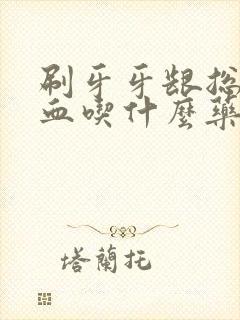 刷牙牙龈总
血喫什麼藥
塔蘭托